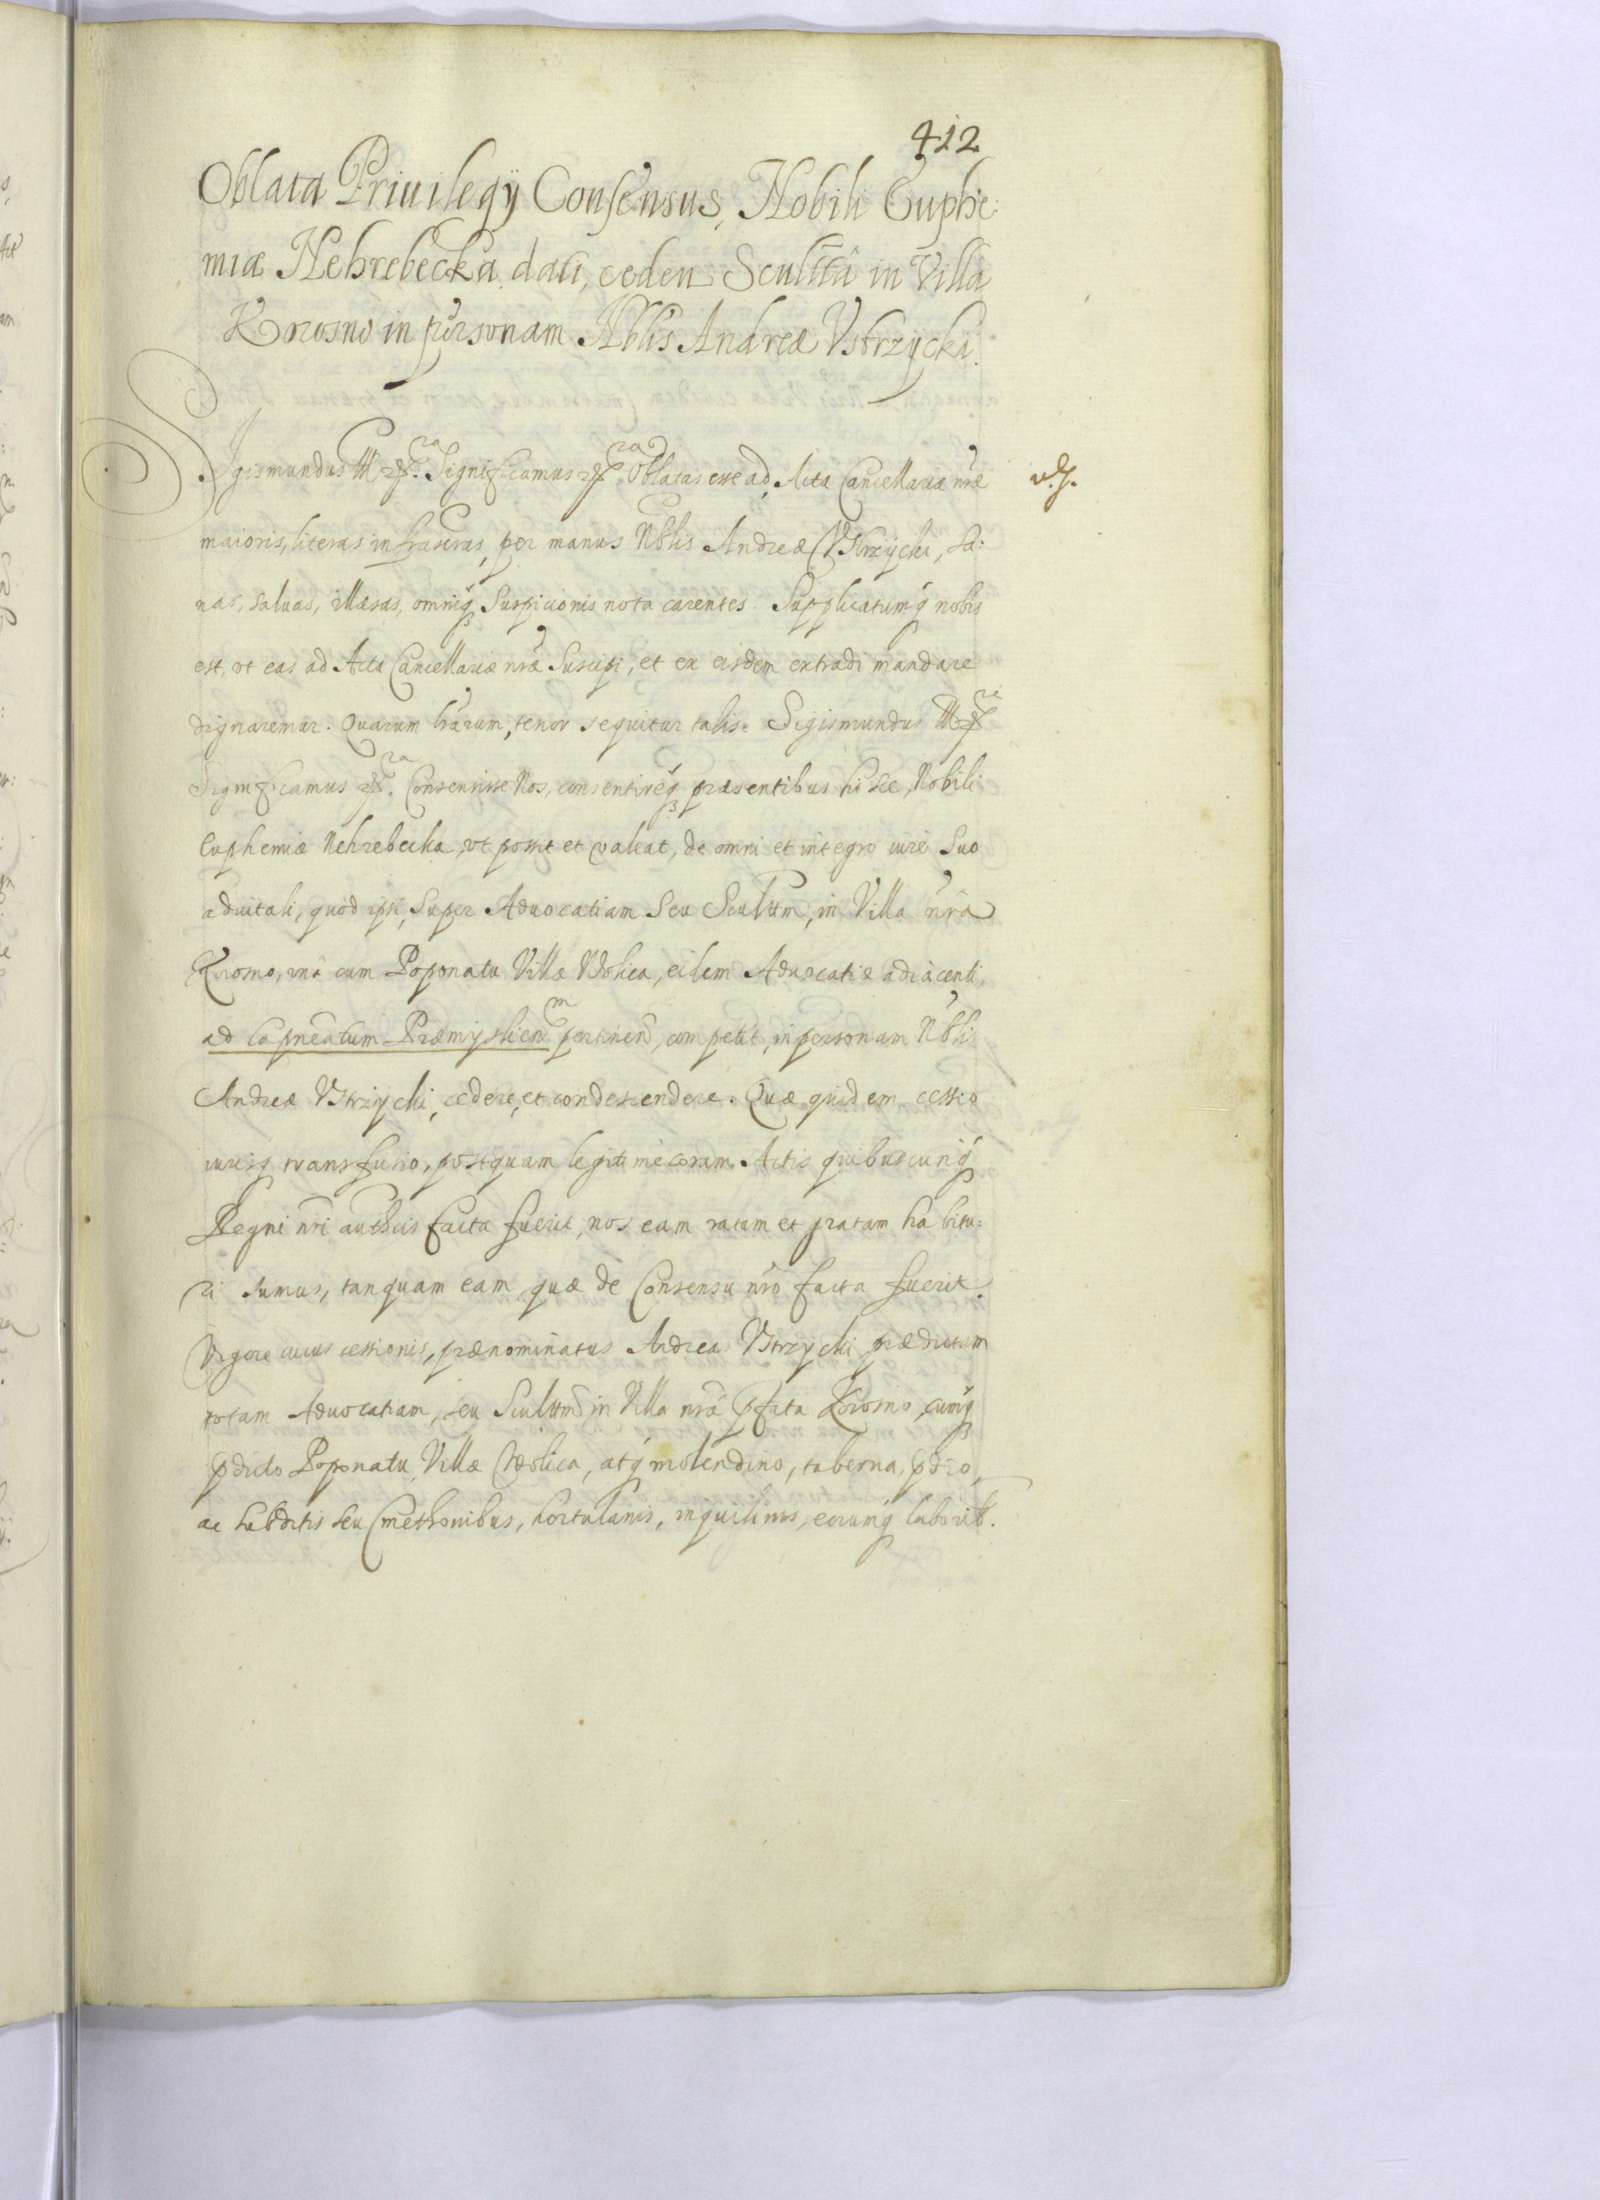 412
Oblata Priuilegÿ Consensus, Nobili Euphe
miæ Nehrebecka dati, ceden Scultta in Villa
Krosno in personam Nblis Andreæ Vstrzÿcki.
Sigismundus III etc. Significamus etc. Oblatas esse ad Acta Cancellariæ nræ
maioris, literas infrascras, per manus Nblis Andreæ Vstrzÿcki, sa:
nas, saluas, illæsas, omniq̃ suspicionis nota carentes. Supplicatumq̃ nobis
est, vt eas ad Acta Cancellariæ nræ suscipi, et ex eisdem extradi mandare
dignaremur. Quarum lrarum, tenor sequitur talis. Sigismundus III etc.
Significamus etc. Consensisse Nos, consentireq̃ præsentibus hisce, Nobili
Euphemiæ Nehrebecka, vt possit et valeat, de omni et integro iure suo
aduitali, quod ipsi, super Aduocatiam seu Scultm, in Villa nrâ
Krosno, vnâ cum Poponatu Villæ Wolica, eidem Aduocatiæ adiacenti,
ad Capneatum Præmÿslien pertinen, competit, in personam Nblis
Andreæ Vstrzÿcki, cedere, et condescendere. Quæ quidem cessio
iurisq̃ transfusio, postquam legitime coram Actis quibuscunq̃
Regni nri authcis facta fuerit, nos eam ratam et gratam habitu:
ri sumus, tanquam eam quæ de Consensu nro facta fuerit.
Vigore cuius cessionis, prænominatus Andreas Vstrzycki prædictam
totam Aduocatiam, seu Scultm in Villa nrâ pfata Krosno, cumq̃
pdicto Poponatu, Villæ Wolica, atq̃ molendino, taberna, pdio,
ac subditis seu Cmethonibus, hortulanis, inquilinis, eorumq̃ laborib.